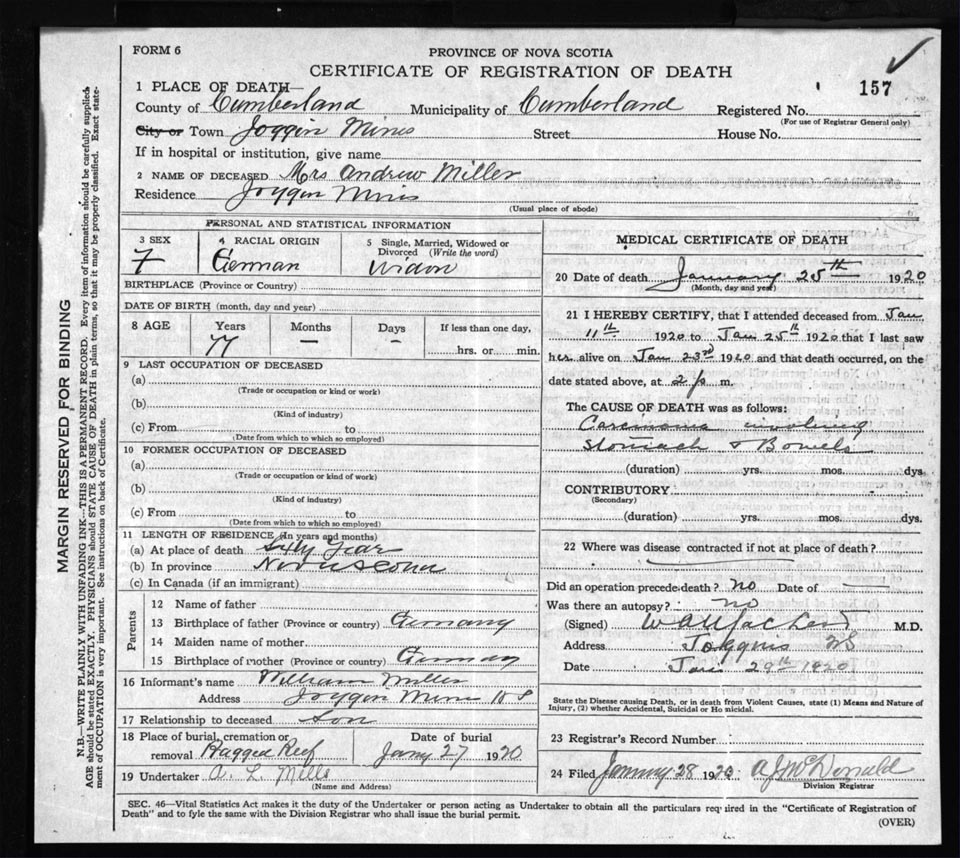 FORM 6
PROVINCE OF NOVA SCOTIA
CERTIFICATE OF REGISTRATION OF DEATH
157
1 PLACE OF DEATH—
County of Cumberland Municipality of Cumberland Registered No.
(For use of Registrar General only)
City or Town Joggin Mines Street House No.
If in hospital or institution, give name
2 NAME OF DECEASED Mrs Andrew Miller
Residence Joggin Mines
(Usual place of abode)
PERSONAL AND STATISTICAL INFORMATION
3 SEX 4 RACIAL ORIGIN 5 Single, Married, Widowed or Divorced (Write the word)
F German Widow
BIRTHPLACE (Province or Country)
DATE OF BIRTH (month, day and year)
8 AGE Years Months Days If less than one day,
77 — — hrs. or min.
9 LAST OCCUPATION OF DECEASED
(a)
(Trade or occupation or kind or work)
(b)
(Kind of industry)
(c) From to
(Date from which to which so employed)
10 FORMER OCCUPATION OF DECEASED
(a)
(Trade or occupation or kind of work)
(b)
(Kind of industry)
(c) From to
(Date from which to which so employed)
11 LENGTH OF RESIDENCE (In years and months)
(a) At place of death Sixty Year
(b) In province Nova Scotia
(c) In Canada (if an immigrant)
Parents
12 Name of father
13 Birthplace of father (Province or country) Germany
14 Maiden name of mother
15 Birthplace of mother (Province or country) Germany
16 Informant's name William Miller
Address Joggin Mines N S
17 Relationship to deceased son
18 Place of burial, cremation or removal Ragged Reef Date of burial Jany 27 1920
19 Undertaker A. L. Mills
(Name and Address)
MEDICAL CERTIFICATE OF DEATH
20 Date of death January 25th 1920
(Month, day and year)
21 I HEREBY CERTIFY, that I attended deceased from Jan
11th 1920 to Jan 25th 1920 that I last saw
her alive on Jan 23rd 1920 and that death occurred, on the
date stated above, at 2 p m.
The CAUSE OF DEATH was as follows:
Carcinoma involving
Stomach & Bowels
(duration) yrs. mos. dys
CONTRIBUTORY
(Secondary)
(duration) yrs. mos. dys.
22 Where was disease contracted if not at place of death?
Did an operation precede death? No Date of —
Was there an autopsy? no
(Signed) M.D.
Address Joggins NS
Date Jan 29th 1920
State the Disease causing Death, or in death from Violent Causes, state (1) Means and Nature of
Injury, (2) whether Accidental, Suicidal or Homicidal.
23 Registrar's Record Number
24 Filed January 28 1920 A J McDonald
Division Registrar
SEC. 46—Vital Statistics Act makes it the duty of the Undertaker or person acting as Undertaker to obtain all the particulars required in the "Certificate of Registration of
Death" and to fyle the same with the Division Registrar who shall issue the burial permit.
(OVER)
MARGIN RESERVED FOR BINDING
N.B.—WRITE PLAINLY WITH UNFADING INK—THIS IS A PERMANENT RECORD. Every item of information should be carefully supplied.
AGE should be stated EXACTLY. PHYSICIANS should STATE CAUSE OF DEATH in plain terms, so that it may be properly classified. Exact state-
ment of OCCUPATION is very important. See instructions on back of Certificate.